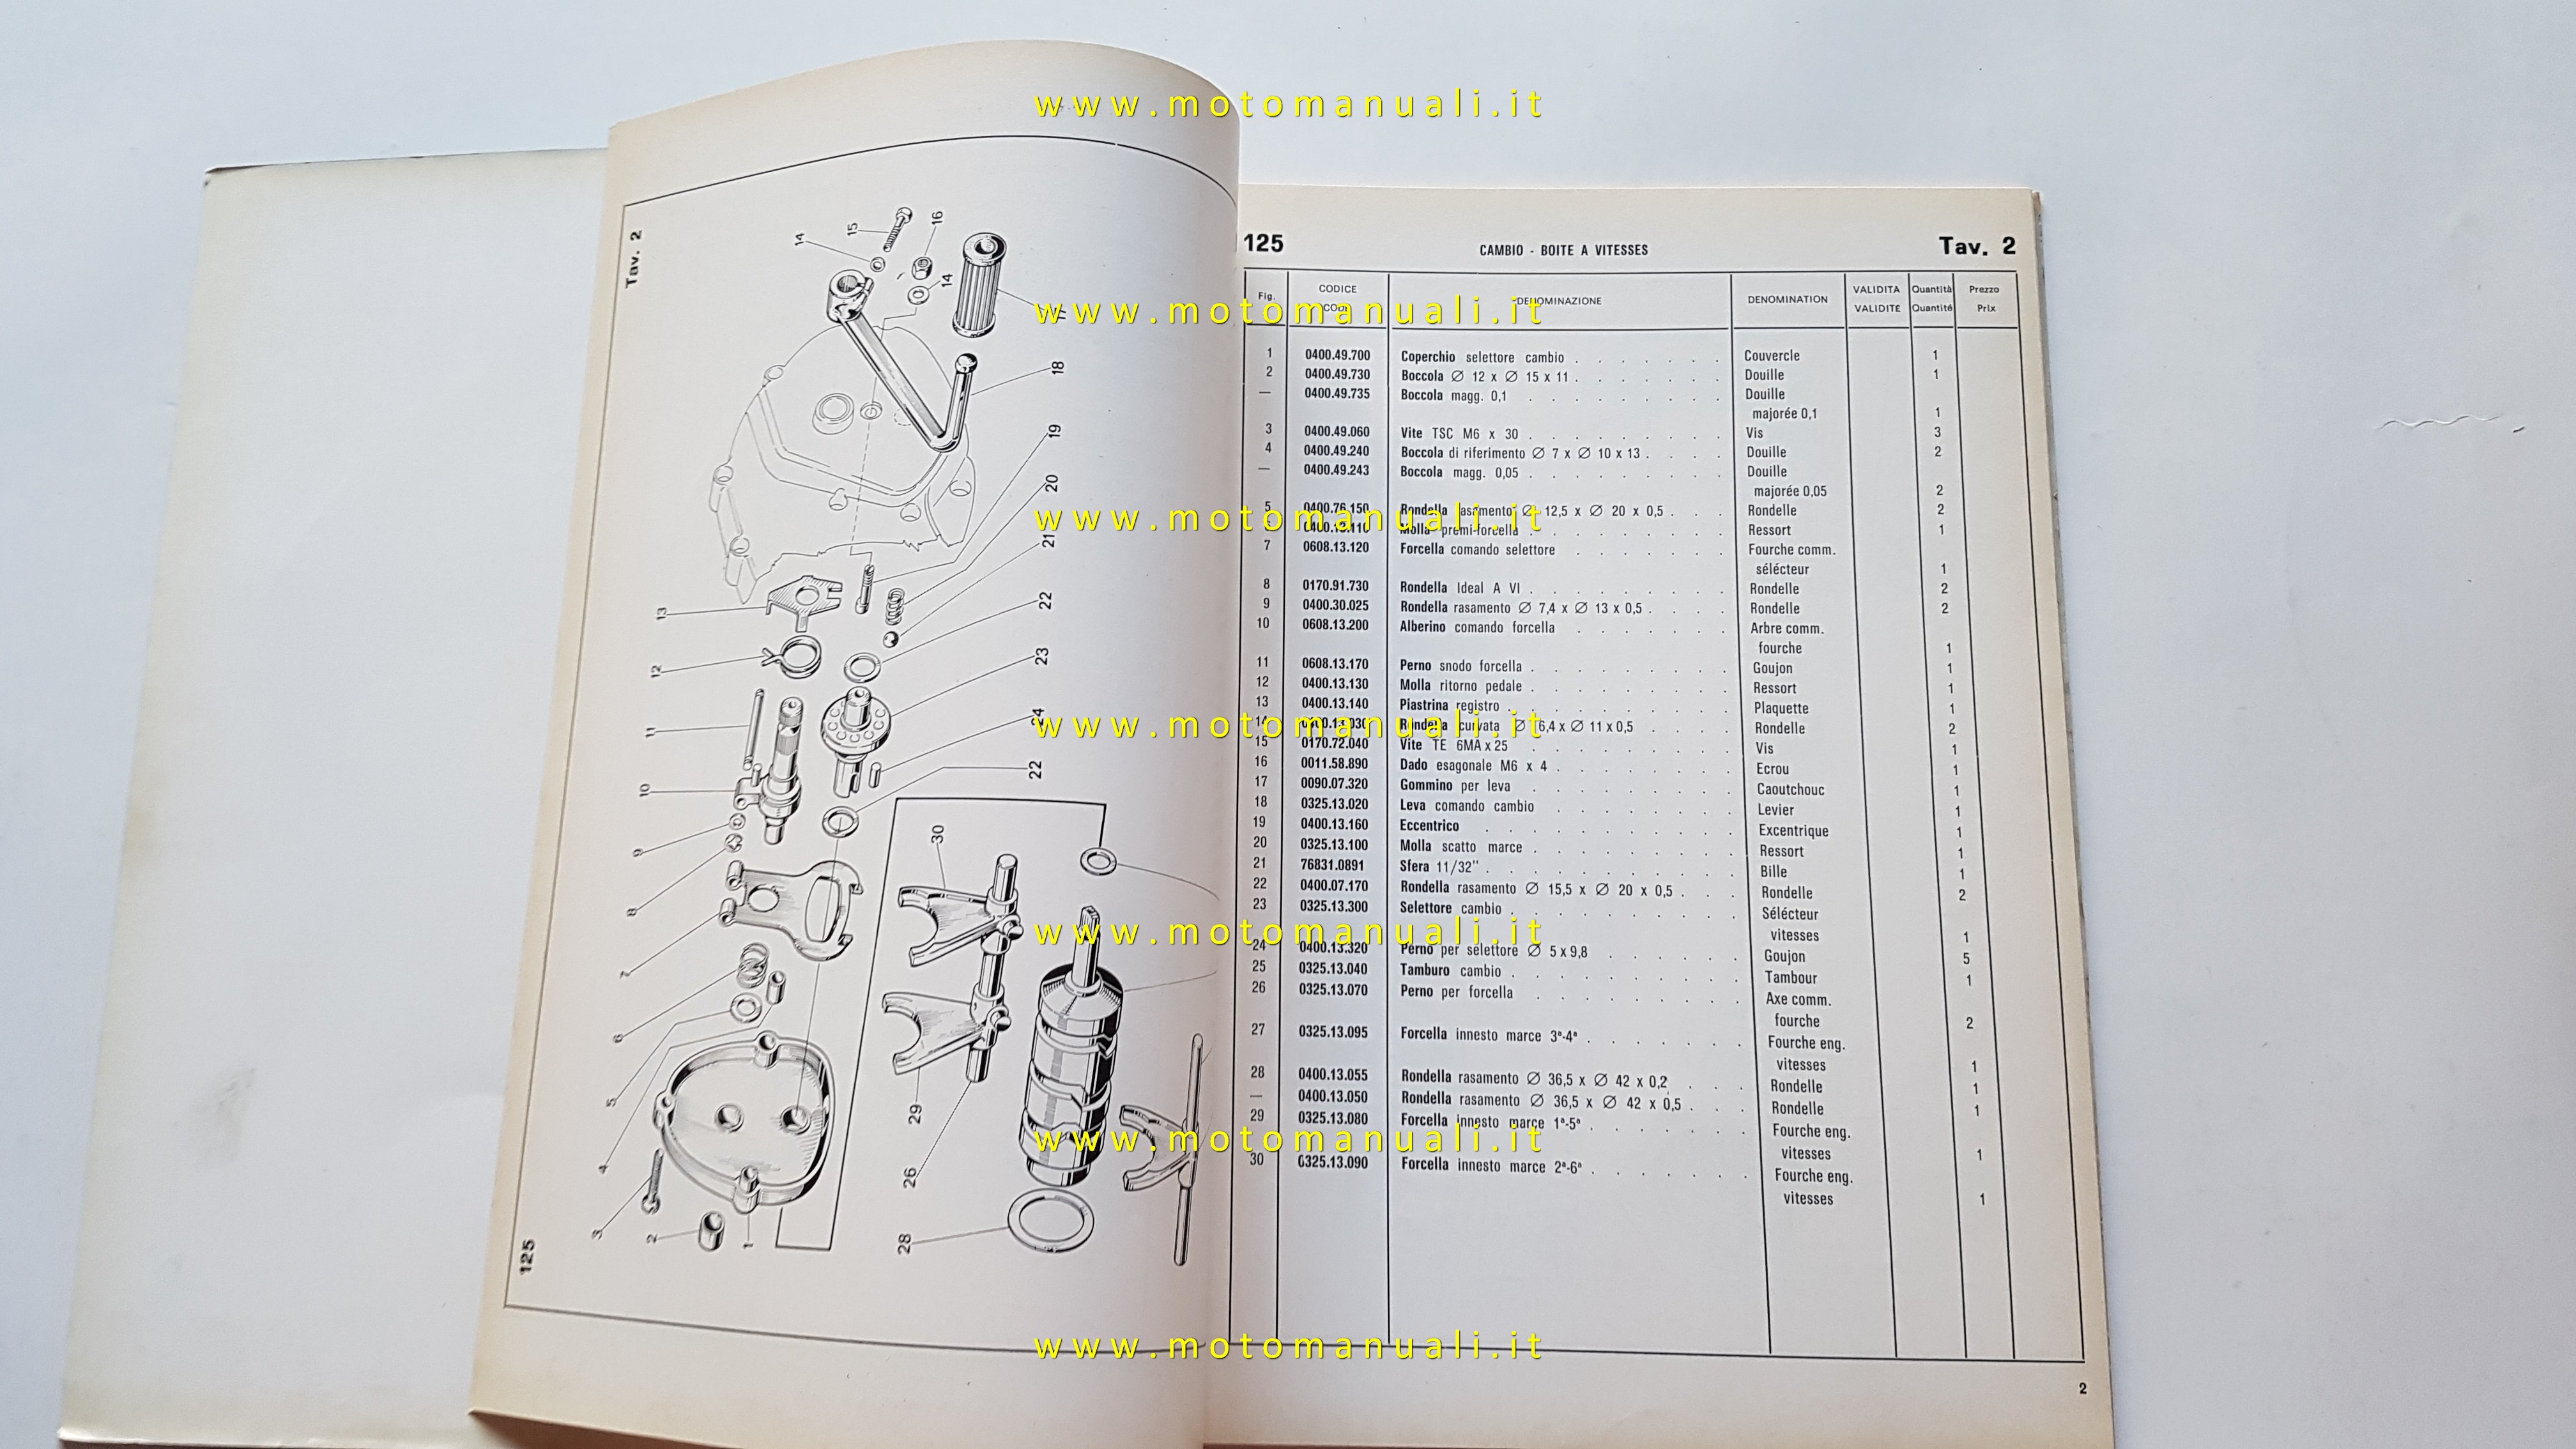 www.motomanuali.it
www.motomanuali.it
www.motomanuali.it
www.motomanuali.it
www.motomanuali.it
www.motomanuali.it
www.motomanuali.it
Tav. 2
14
15
16
14
17
18
19
20
21
22
23
24
22
13
12
11
10
9
8
7
6
5
4
3
2
1
30
29
26
28
125
125 CAMBIO - BOITE A VITESSES Tav. 2
Fig. CODICE DENOMINAZIONE DENOMINATION VALIDITA Quantità Prezzo
VALIDITE Quantité Prix
1 0400.49.700 Coperchio selettore cambio Couvercle 1
2 0400.49.730 Boccola Ø 12 x Ø 15 x 11 Douille 1
— 0400.49.735 Boccola magg. 0,1 Douille
majorée 0,1 1
3 0400.49.060 Vite TSC M6 x 30 Vis 3
4 0400.49.240 Boccola di riferimento Ø 7 x Ø 10 x 13 Douille 2
— 0400.49.243 Boccola magg. 0,05 Douille
majorée 0,05 2
5 0400.76.150 Rondella rasamento Ø 12,5 x Ø 20 x 0,5 Rondelle 2
0400.13.110 Molla premi-forcella Ressort 1
7 0608.13.120 Forcella comando selettore Fourche comm.
sélécteur 1
8 0170.91.730 Rondella Ideal A VI Rondelle 2
9 0400.30.025 Rondella rasamento Ø 7,4 x Ø 13 x 0,5 Rondelle 2
10 0608.13.200 Alberino comando forcella Arbre comm.
fourche 1
11 0608.13.170 Perno snodo forcella Goujon 1
12 0400.13.130 Molla ritorno pedale Ressort 1
13 0400.13.140 Piastrina registro Plaquette 1
14 0400.13.030 Rondella curvata Ø 6,4 x Ø 11 x 0,5 Rondelle 2
15 0170.72.040 Vite TE 6MA x 25 Vis 1
16 0011.58.890 Dado esagonale M6 x 4 Ecrou 1
17 0090.07.320 Gommino per leva Caoutchouc 1
18 0325.13.020 Leva comando cambio Levier 1
19 0400.13.160 Eccentrico Excentrique 1
20 0325.13.100 Molla scatto marce Ressort 1
21 76831.0891 Sfera 11/32" Bille 1
22 0400.07.170 Rondella rasamento Ø 15,5 x Ø 20 x 0,5 Rondelle 2
23 0325.13.300 Selettore cambio Sélécteur
vitesses 1
24 0400.13.320 Perno per selettore Ø 5 x 9,8 Goujon 5
25 0325.13.040 Tamburo cambio Tambour 1
26 0325.13.070 Perno per forcella Axe comm.
fourche 2
27 0325.13.095 Forcella innesto marce 3ª-4ª Fourche eng.
vitesses 1
28 0400.13.055 Rondella rasamento Ø 36,5 x Ø 42 x 0,2 Rondelle 1
— 0400.13.050 Rondella rasamento Ø 36,5 x Ø 42 x 0,5 Rondelle 1
29 0325.13.080 Forcella innesto marce 1ª-5ª Fourche eng.
vitesses 1
30 0325.13.090 Forcella innesto marce 2ª-6ª Fourche eng.
vitesses 1
2